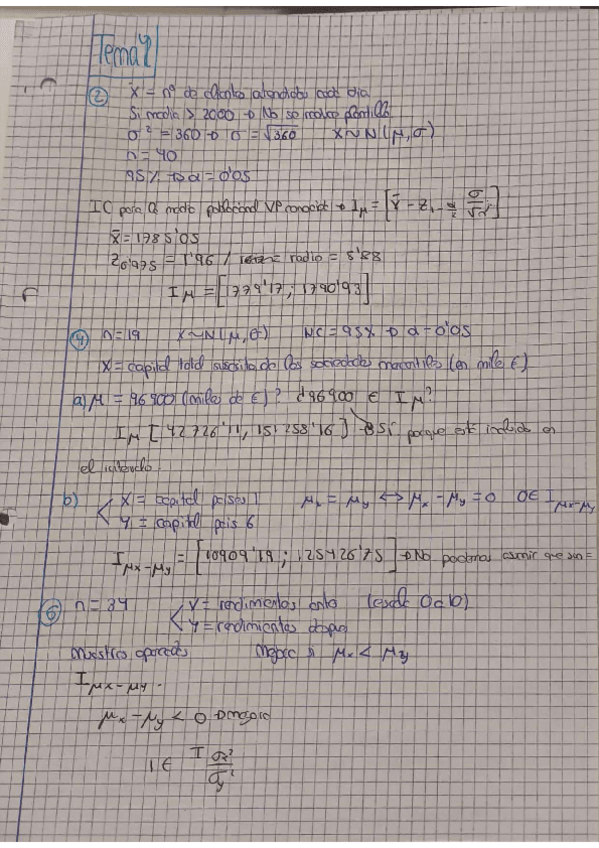 Tema 4
② X = nº de clientes atendidos cada día
Si media > 2000 → No se reduce plantilla
σ² = 360 → σ = √360   X~N(μ,σ)
n = 40
95% → α = 0'05
IC para la media poblacional VP conocida → Iμ = [x̄ - z₁₋α/2 σ/√n]
x̄ = 1785'05
z₀'₉₇₅ = 1'96 / radio = 5'88
Iμ = [1779'17 ; 1790'93]
④ n = 19   X~N(μ,σ)   NC = 95% → α = 0'05
X = capital total suscrito de las sociedades mercantiles (en miles €)
a) μ = 96900 (miles de €)? ¿96900 ∈ Iμ?
Iμ [42726'11, 151258'16] → Sí porque está incluido en
el intervalo.
b) X = capital 1   μx = μy ⟺ μx - μy = 0   0 ∈ Iμx-μy
Y = capital país 6
Iμx-μy = [10909'19 ; 125426'75] → No podemos asumir que son =
⑥ n = 34   X = rendimientos antes (escala 0 a 10)
Y = rendimientos después
Muestras apareadas   Mejora si μx < μy
Iμx-μy.
μx - μy < 0 → mejora
1 ∈ I σx²/σy²